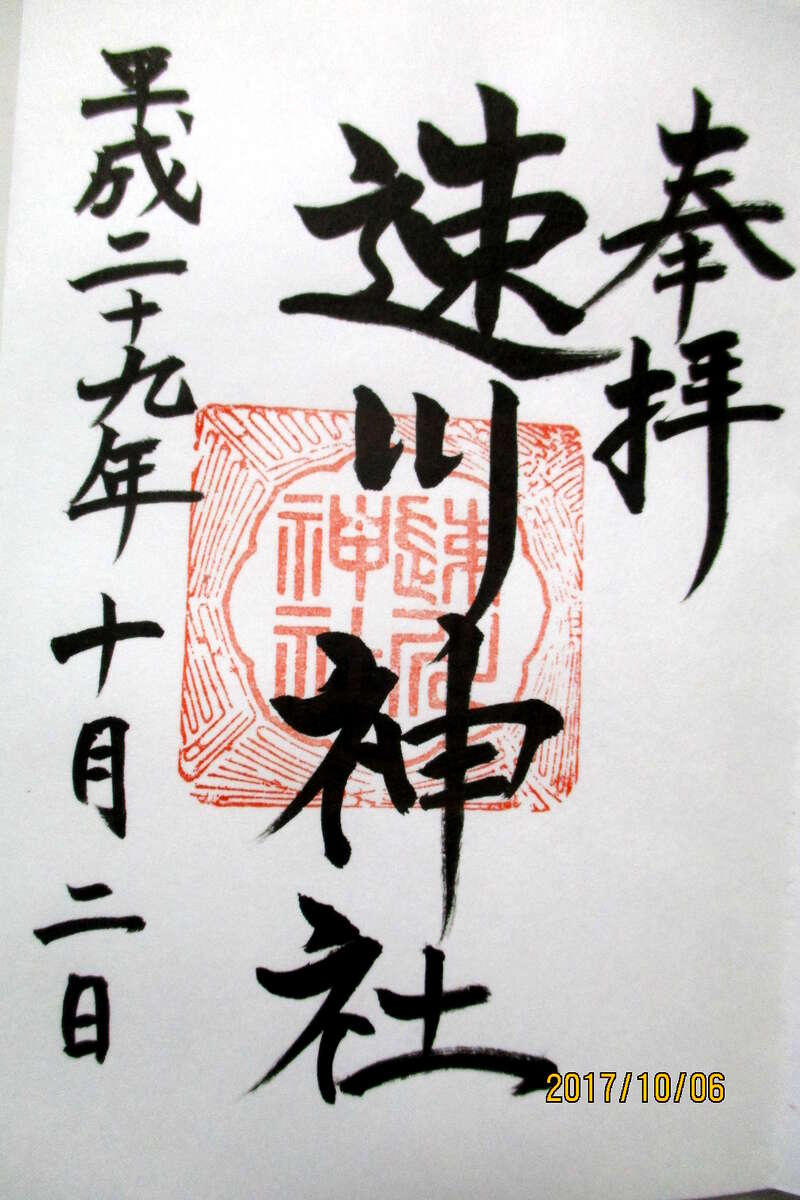 奉拝
速川神社
平成二十九年十月二日
2017/10/06